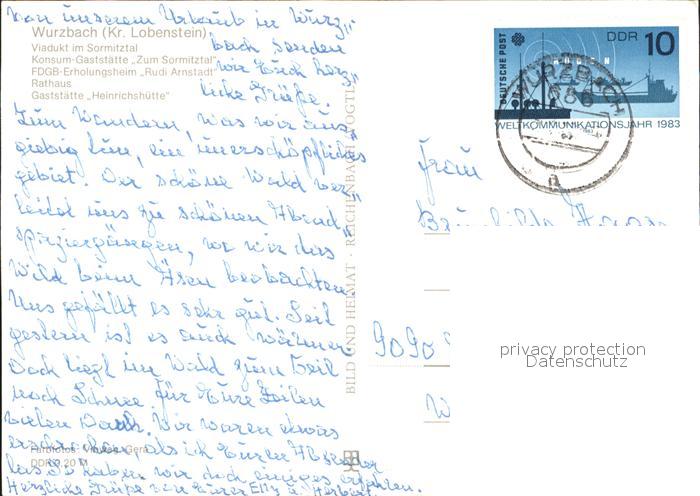 von unserem Urlaub in Wurz„
Wurzbach (Kr. Lobenstein)
bach senden
Viadukt im Sormitztal
Konsum-Gaststätte „Zum Sormitztal"
wir Euch herz„
FDGB-Erholungsheim „Rudi Arnstadt"
Rathaus
liche Grüße.
Gaststätte „Heinrichshütte"
Zum Wandern, was wir aus„
giebig tun, ein unerschöpfliches
gebiet. Der schöne Wald ver„
leitet uns zu schönen Abend„
spaziergängen, wo wir das
Wild beim Äsen beobachten.
Uns gefällt es sehr gut. Seit
gestern ist es auch wärmer
Doch liegt im Wald zum Teil
noch Schnee Für Eure Zeilen
vielen Dank. Wir waren etwas
erschrocken, als ich Euren Absender
las So haben wir doch einiges erfahren.
Herzliche Grüße von Eurer Elly u. Herbert.
Farbfotos: Gera
DDR
BILD UND HEIMAT · REICHENBACH (VOGTL)
DEUTSCHE POST
DDR 10
WURZBACH
6856
a
WELTKOMMUNIKATIONSJAHR 1983
Frau
9090
privacy protection
Datenschutz